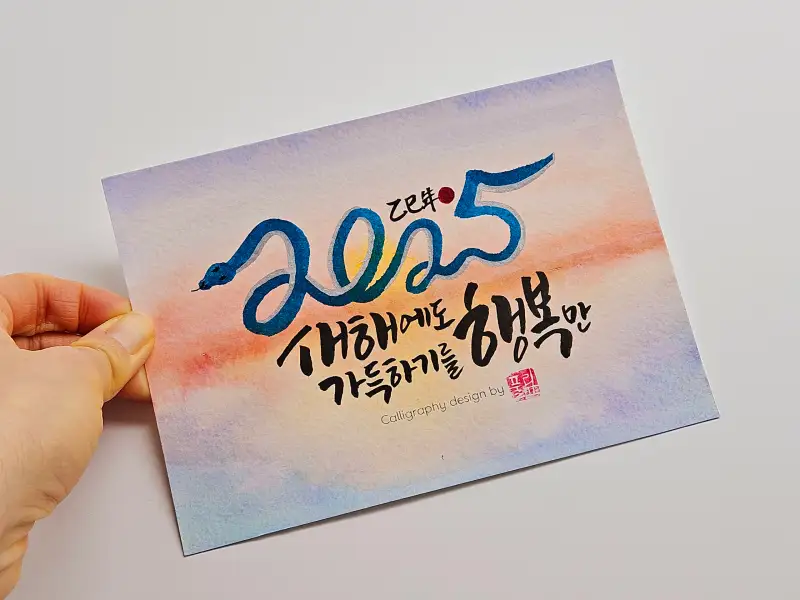 2025
乙巳年
새해에도 행복만
가득하기를
Calligraphy design by